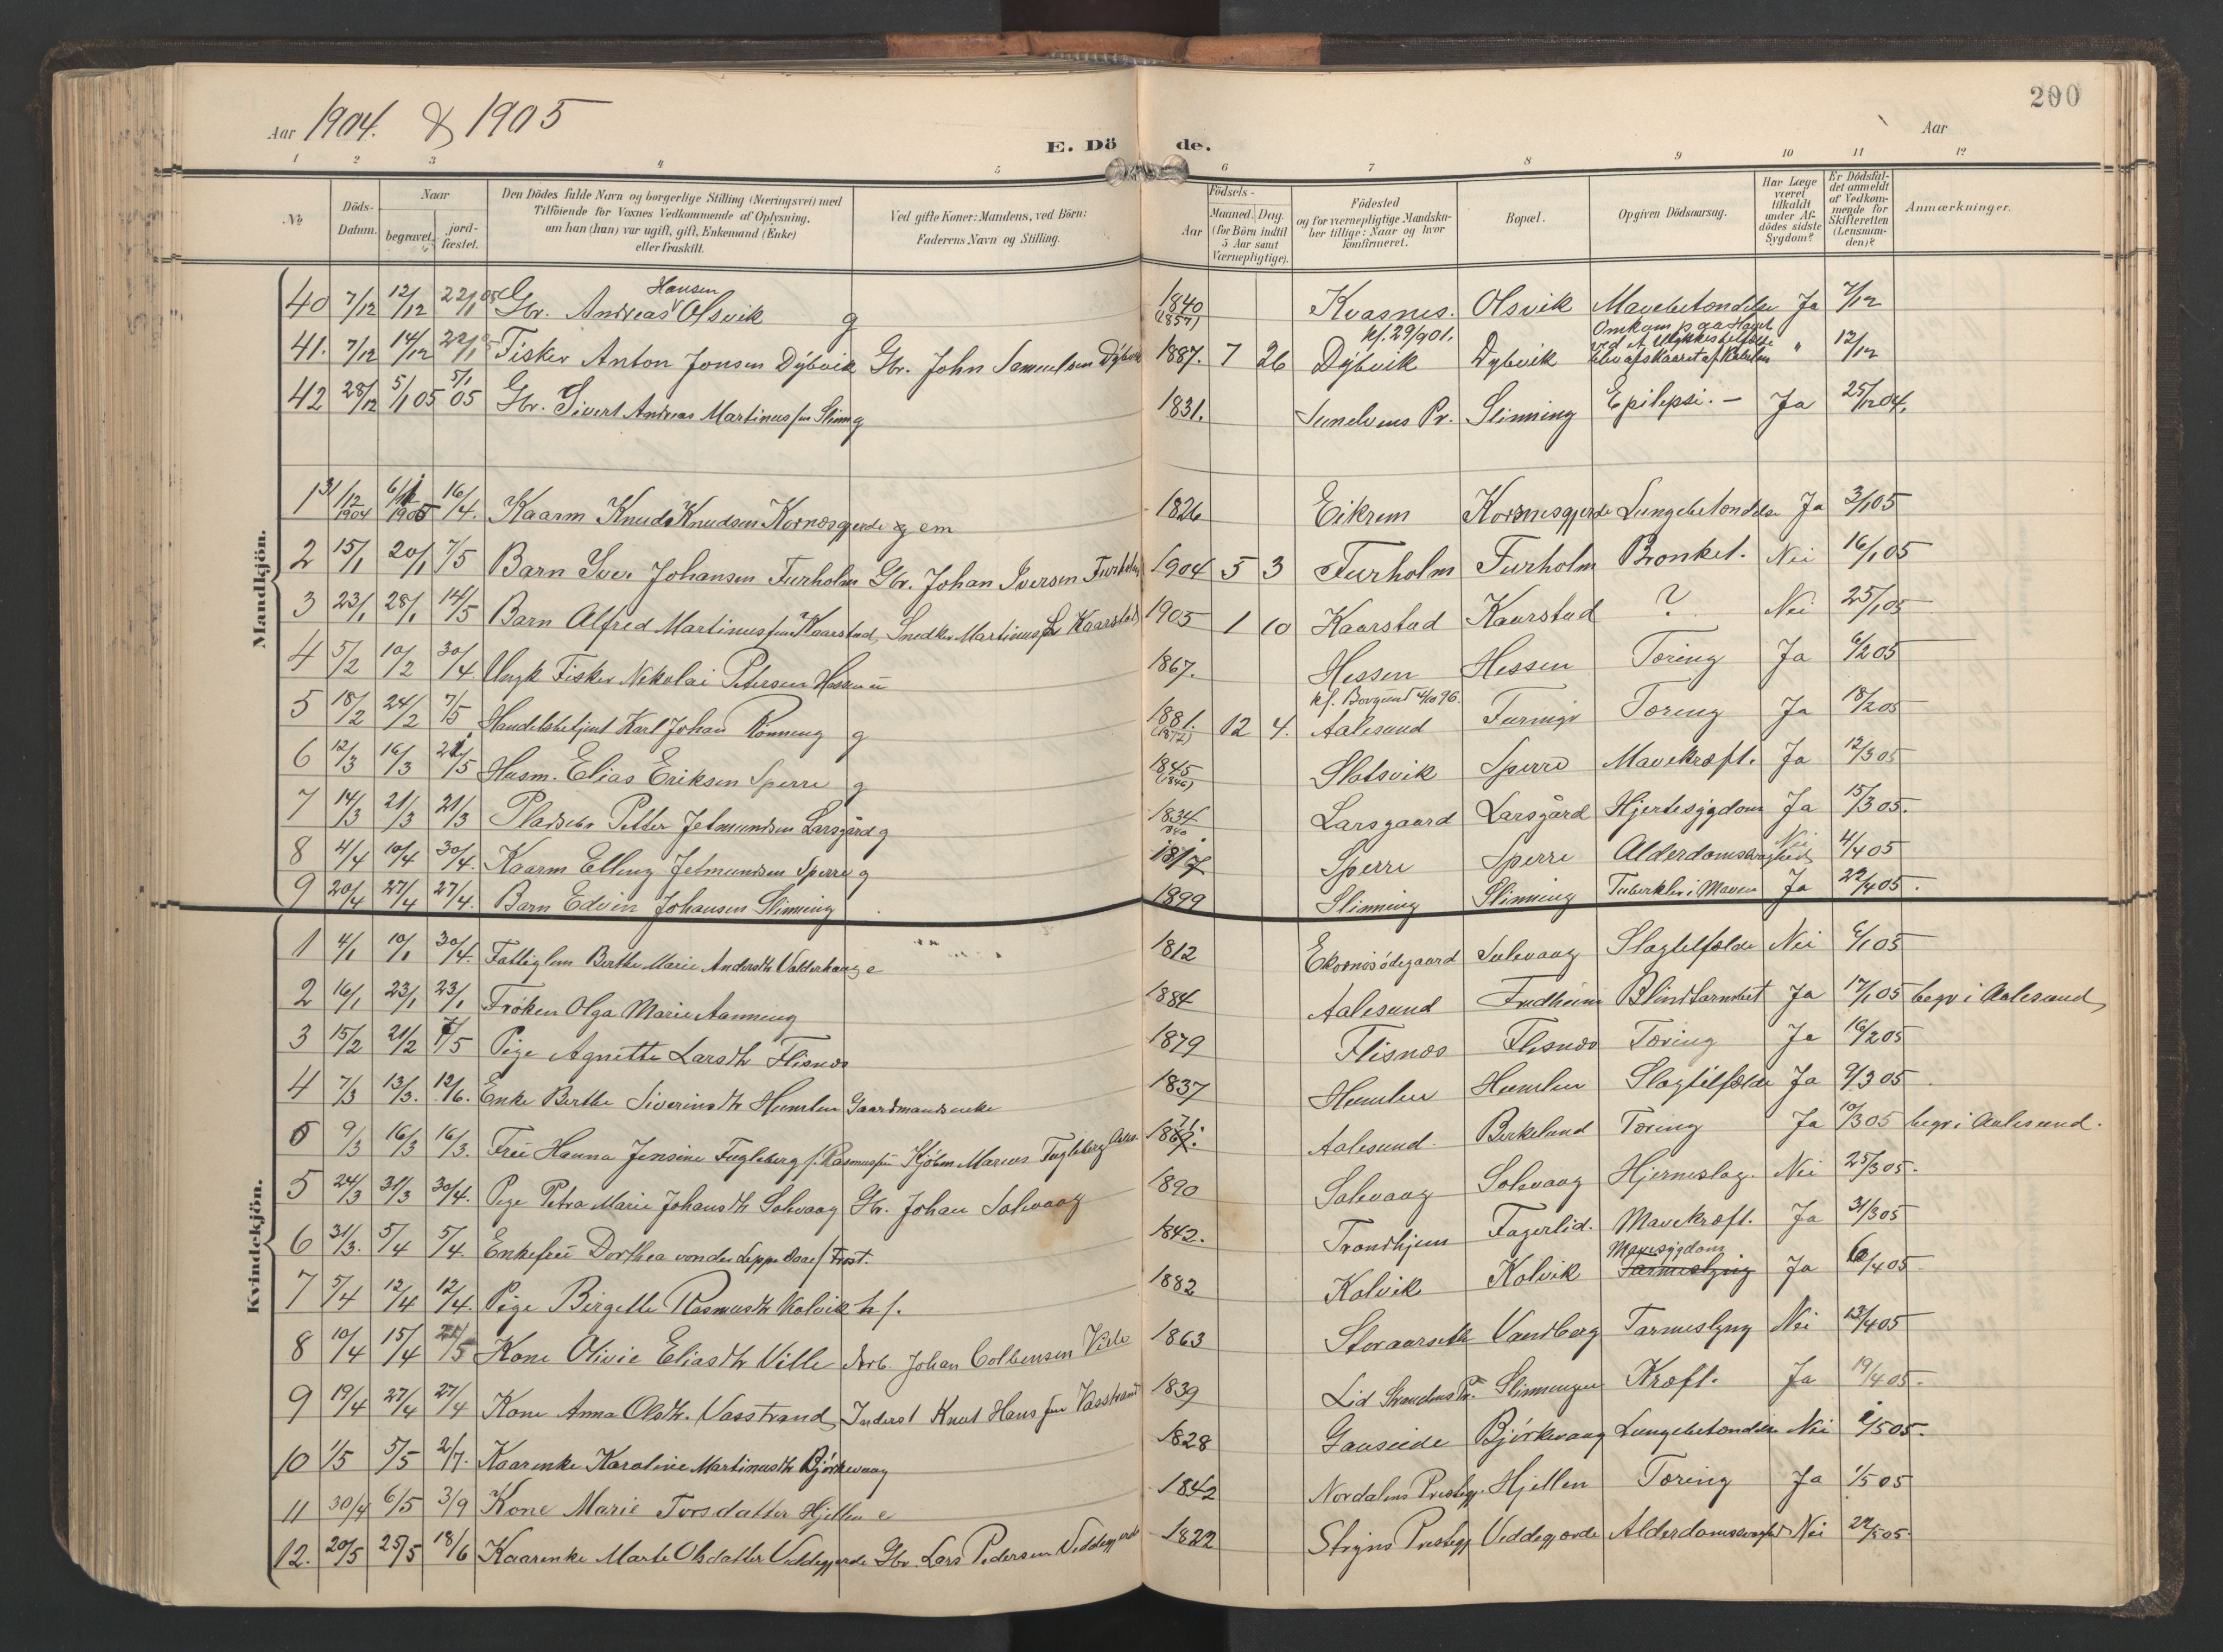 200
Aar 1904. & 1905
Aar
E. Dö de.
1 2 3 4 5 6 7 8 9 10 11 12
No
Döds-Datum.
Naar
begravet.
jord-fæstet.
Den Dödes fulde Navn og borgerlige Stilling (Næringsvei) med
Tilföiende for Voxnes Vedkommende af Oplysning,
om han (hun) var ugift, gift, Enkemand (Enke)
eller fraskilt.
Ved gifte Koner: Mandens, ved Börn:
Faderens Navn og Stilling.
Födsels-
Aar
Maaned. Dag.
(for Börn indtil
5 Aar samt
Værnepligtige).
Födested
og for værnepligtige Mandska-
ber tillige: Naar og hvor
konfirmeret.
Bopæl.
Opgiven Dödsaarsag.
Har Læge
været
tilkaldt
under Af-
dödes sidste
Sygdom?
Er Dödsfal-
det anmeldt
af Vedkom-
mende for
Skifteretten
(Lensman-
den)?
Anmærkninger.
Mandkjön.
40 7/12 12/12 22/1 05 Gbr. Andreas Hansen Olsvik g 1840 (1857) Kvasnes. Olsvik Mavebetændelse Ja 7/12
41. 7/12 14/12 22/1 Fisker Anton Jonsen Dybvik Gbr. John Samuelsen Dybvik 1887. 7 26 kf. 29/9 01. Dybvik Dybvik Omkom paa Havet ved et Ulykkestilfælde " 12/12
42 28/12 5/1 05 5/1 05 Gbr. Sivert Andreas Martinussen Slinn g 1831. Sunelvens Pr. Slinning Epilepsi. - Ja 25/12 04.
1 31/12 1904 6/1 1905 16/4. Kaarm Knud Knudsen Kornæsgjerde em 1826 Eikrem Kornnesgjerde Lungebetændelse Ja 3/1 05
2 15/1 20/1 7/5 Barn Iver Johansen Furholm Gbr. Johan Iversen Furholm 1904 5 3 Furholm Furholm Bronkit. Nei 16/1 05
3 23/1 28/1 14/5 Barn Alfred Martinussen Kaarstad Snedker Martinus Kaarstad 1905 1 10 Kaarstad Kaarstad ? Nei 25/1 05
4 5/2 10/2 30/4 Ungk Fisker Nikolai Petersen Hessen u 1867. Hessen Hessen Tæring Ja 6/2 05
5 18/2 24/2 7/5 Handelsbetjent Karl Johan Rønning g 1881. (1872) 12 4. kf. Borgund 4/10 96. Aalesund Tæring Ja 18/2 05
6 12/3 16/3 21/5 Husm. Elias Eriksen Sperre g 1845 (1846) Slatsvik Sperre Mavekræft. Ja 12/3 05
7 14/3 21/3 21/3 Pladsebr Petter Jetmundsen Larsgård g 1834 Larsgaard Larsgård Hjertesygdom Ja 15/3 05.
8 4/4 10/4 30/4. Kaarm Elling Jetmundsen Sperre g 1817 Sperre Sperre Alderdomssvaghed Nei 4/4 05
9 20/4 27/4 27/4. Barn Edvin Johansen Slinning 1899 Slinning Slinning Tuberkler i Maven Ja 22/4 05.
Kvindekjön.
1 4/1 10/1 30/4. Fattiglem Berthe Marie Andersdtr Valderhaug e 1812 Ekornæsødegaard Solevaag Slagtilfælde Nei 6/1 05
2 16/1 23/1 23/1 Frøken Olga Marie Aanning 1884 Aalesund Fredheim Blindtarmbet Ja 17/1 05 begr i Aalesund
3 15/2 21/2 7/5 Pige Agnette Larsdtr Flisnæs 1879 Flisnæs Flisnæs Tæring Ja 16/2 05
4 7/3 13/3. 12/6. Enke Berthe Siverinsdtr Humlen Gaardmandsenke 1837 Humlen Humlen Slagtilfælde Ja 9/3 05
0 9/3 16/3 16/3. Frue Hanna Jensine Fugleberg f. Rasmussen Kjøbm Marius Fugleberg Aales. 1871. Aalesund. Birkelund Tæring Ja 10/3 05 begr i Aalesund.
5 24/3 31/3 30/4. Pige Petra Marie Johansdtr Solevaag Gbr. Johan Solevaag 1890 Solevaag Solevaag Hjerneslag. Nei 25/3 05.
6 31/3. 5/4 5/4. Enkefrue Dorthea von der Lippe Daae f. Frost. 1842. Trondhjem Fagerlid. Mavekræft. Ja 31/3 05
7 5/4 12/4 12/4. Pige Birgette Rasmusdtr Kolvik h f. 1882 Kolvik Kolvik Mavesygdom Ja 6/4 05
8 10/4 15/4 21/5 Kone Olivie Eliasdtr Ville Arb. Johan Colbensen Ville 1863 Storaarseth Vandberg Tarmeslyng Nei 13/4 05
9 19/4 27/4 27/4 Kone Anna Olsdtr. Vasstrand Inderst Knut Hansen Vasstrand 1839 Lid Strandens Pr. Slinningen Kræft. Ja 19/4 05.
10 1/5 5/5 2/7. Kaarenke Karoline Martinusdtr Bjørkevaag 1828 Gauseide Bjørkevaag Lungebetændelse Nei 2/5 05.
11 30/4 6/5 3/9 Kone Marie Torsdatter Hjellen e 1842 Nordalens Prestegj. Hjellen Tæring Ja 1/5 05
12. 20/5 25/5 18/6 Kaarenke Marte Olsdatter Veddegjerde Gbr. Lars Pedersen Veddegjerde 1822 Stryns Prestegj Veddegjerde Alderdomssvaghed Nei 22/5 05.